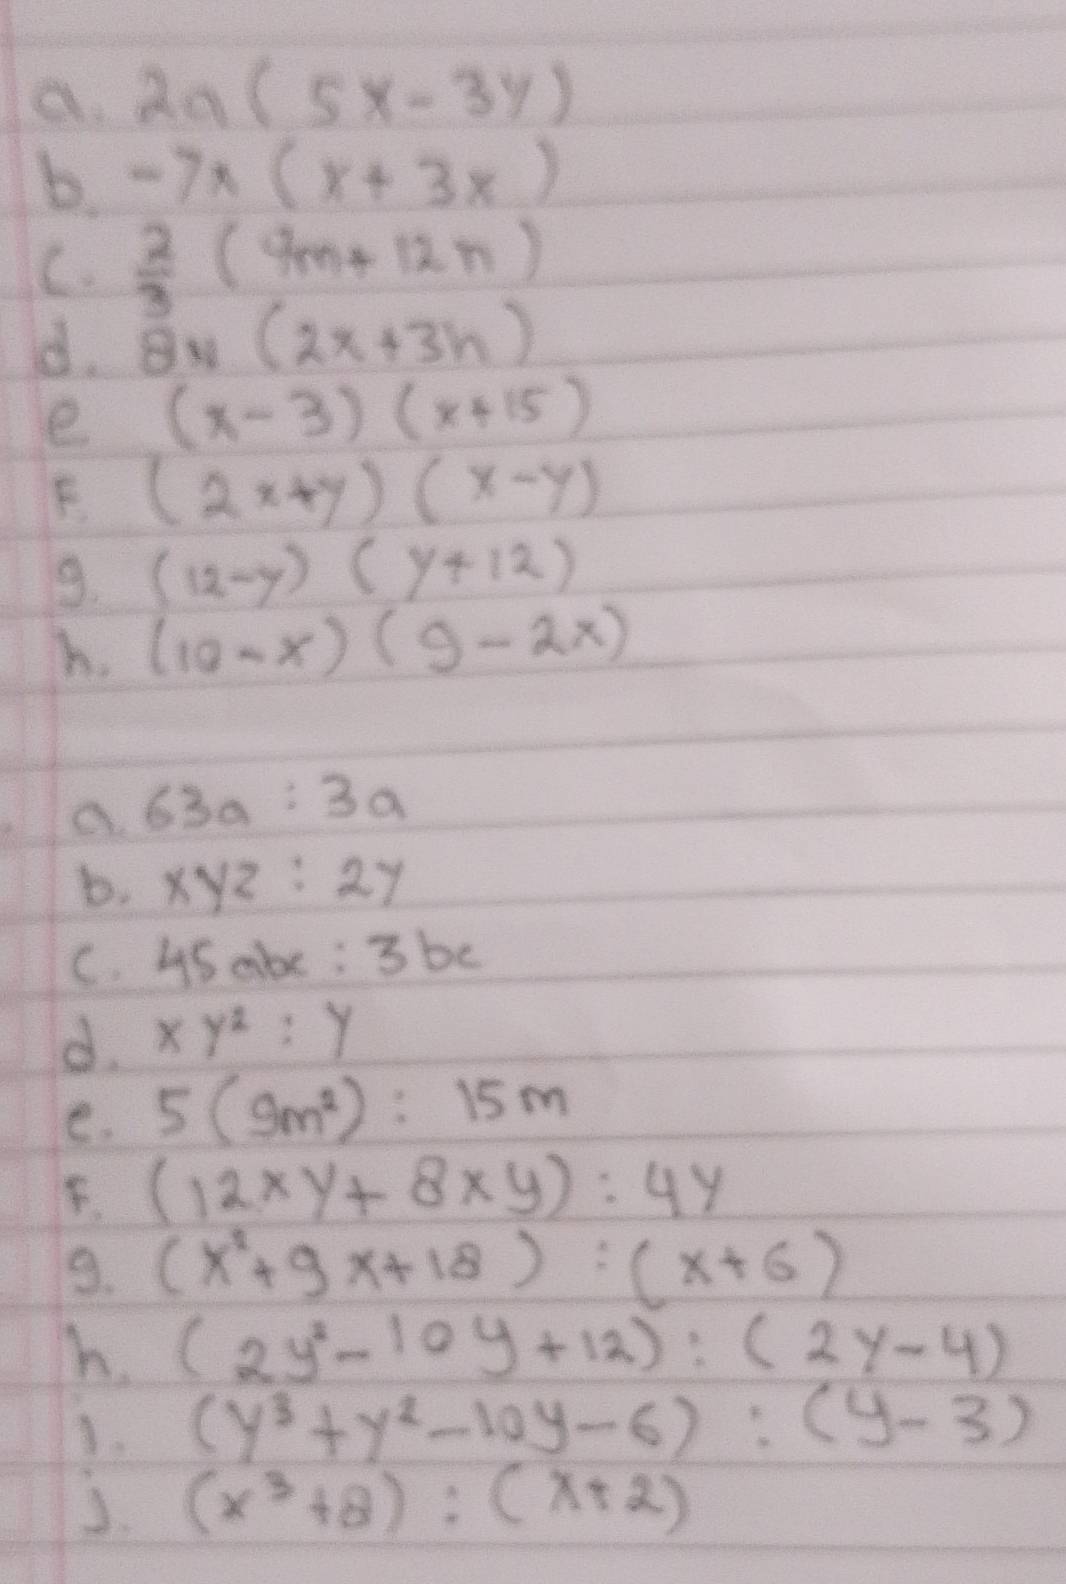 a. 2a ( 5x - 3y )
b. -7x ( x + 3x )
c. 2/3 ( 9m + 12n )
d. 8n ( 2x + 3n )
e (x - 3) (x + 15)
F. (2x + y) (x - y)
g. (12 - y) ( y + 12 )
h. (10 - x) ( 9 - 2x )
a. 63a : 3a
b. xyz : 2y
c. 45 abc : 3 bc
d. xy² : y
e. 5 (9m²) : 15 m
F. (12xy + 8xy) : 4y
g. (x² + 9x + 18 ) : (x + 6 )
h. ( 2y² - 10y + 12) : ( 2y - 4)
i. (y³ + y² - 10y - 6) : (y - 3)
j. (x³ + 8) : ( x + 2)